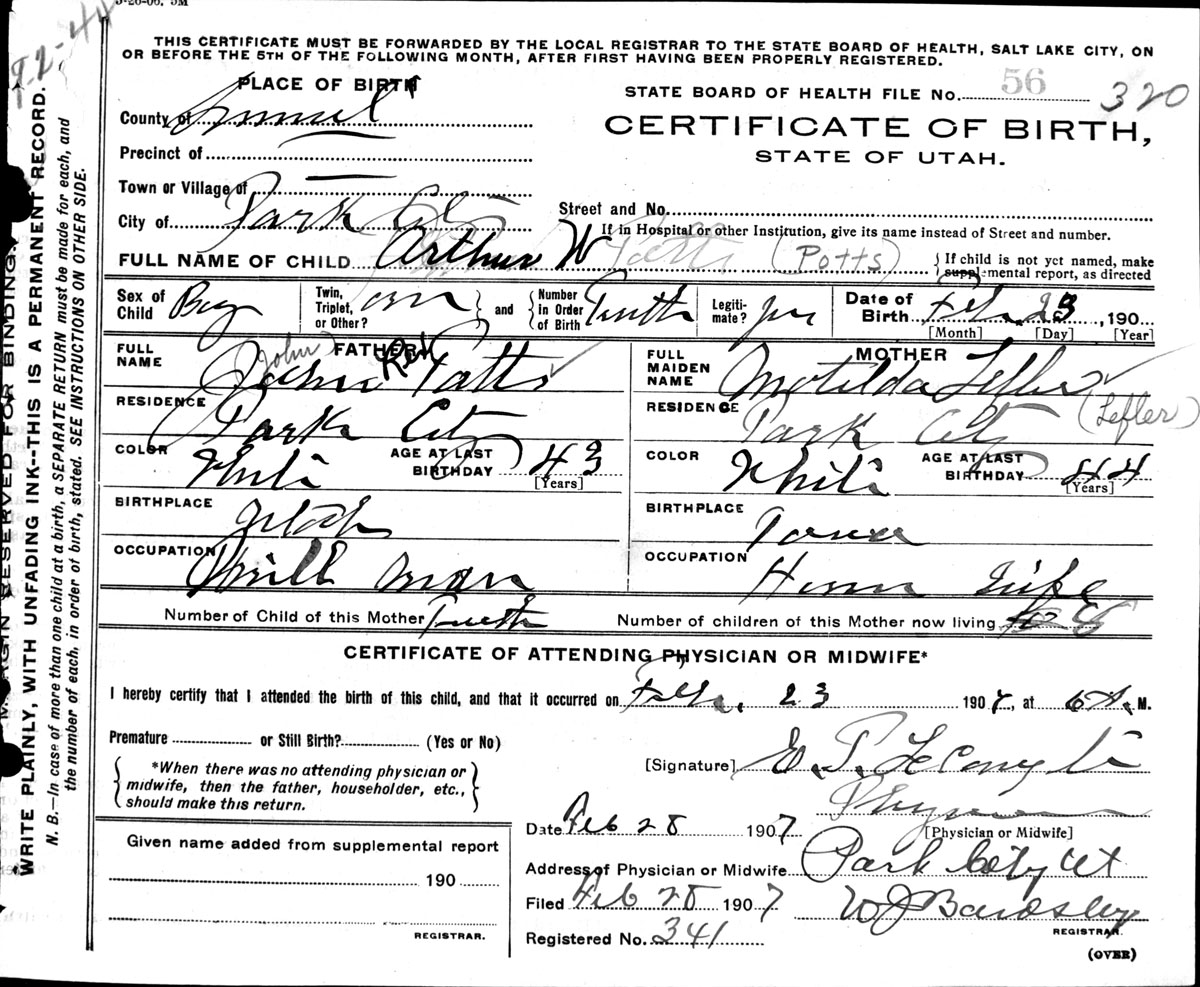 3-26-06, 5M
THIS CERTIFICATE MUST BE FORWARDED BY THE LOCAL REGISTRAR TO THE STATE BOARD OF HEALTH, SALT LAKE CITY, ON
OR BEFORE THE 5TH OF THE FOLLOWING MONTH, AFTER FIRST HAVING BEEN PROPERLY REGISTERED.
PLACE OF BIRTH
STATE BOARD OF HEALTH FILE No. 56 320
County of Summit
CERTIFICATE OF BIRTH,
STATE OF UTAH.
Precinct of
Town or Village of
City of Park City
Street and No.
If in Hospital or other Institution, give its name instead of Street and number.
FULL NAME OF CHILD Arthur W Potts (Potts)
{ If child is not yet named, make
supplemental report, as directed
Sex of Child Boy
Twin, Triplet, or Other?
and
Number In Order of Birth
Legiti-mate? yes
Date of Birth Feb. 23, 190
[Month] [Day] [Year]
FATHER
FULL NAME John Potts
John
RESIDENCE Park City
COLOR White
AGE AT LAST BIRTHDAY 43
[Years]
BIRTHPLACE Utah
OCCUPATION Mill man
MOTHER
FULL MAIDEN NAME Motilda Lefler
(Lefler)
RESIDENCE Park City
COLOR White
AGE AT LAST BIRTHDAY 44
[Years]
BIRTHPLACE Iowa
OCCUPATION House Wife
Number of Child of this Mother
Number of children of this Mother now living 8
CERTIFICATE OF ATTENDING PHYSICIAN OR MIDWIFE*
I hereby certify that I attended the birth of this child, and that it occurred on Feb. 23 1907, at 6 A. M.
Premature or Still Birth? (Yes or No)
*When there was no attending physician or
midwife, then the father, householder, etc.,
should make this return.
[Signature] E. P. LeCompte
Physician
[Physician or Midwife]
Date Feb 28 1907
Address of Physician or Midwife Park City Ut
Filed Feb 28 1907
W J Bardsley
REGISTRAR.
Registered No. 341
(OVER)
Given name added from supplemental report
190
REGISTRAR.
MARGIN RESERVED FOR BINDING.
WRITE PLAINLY, WITH UNFADING INK--THIS IS A PERMANENT RECORD.
N. B.—In case of more than one child at a birth, a SEPARATE RETURN must be made for each, and
the number of each, in order of birth, stated. SEE INSTRUCTIONS ON OTHER SIDE.